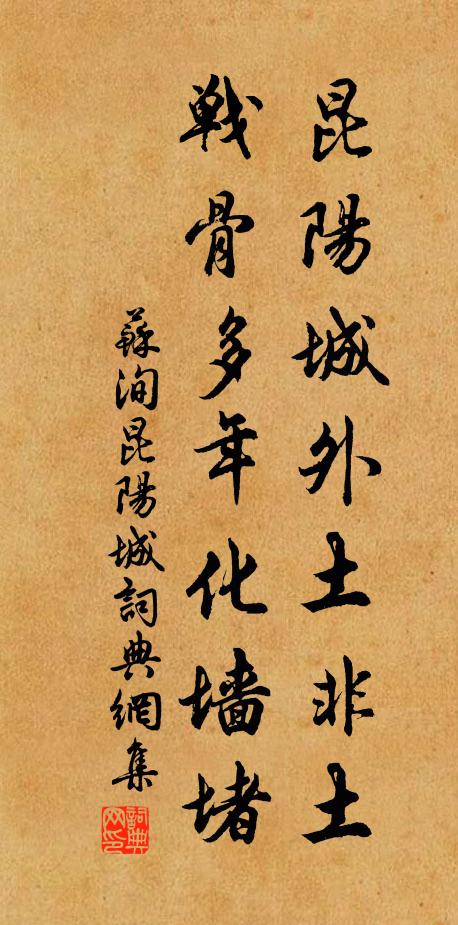 昆陽城外土非土
戰骨多年化墻堵
蘇洵昆陽城詞典網集
詞典網印